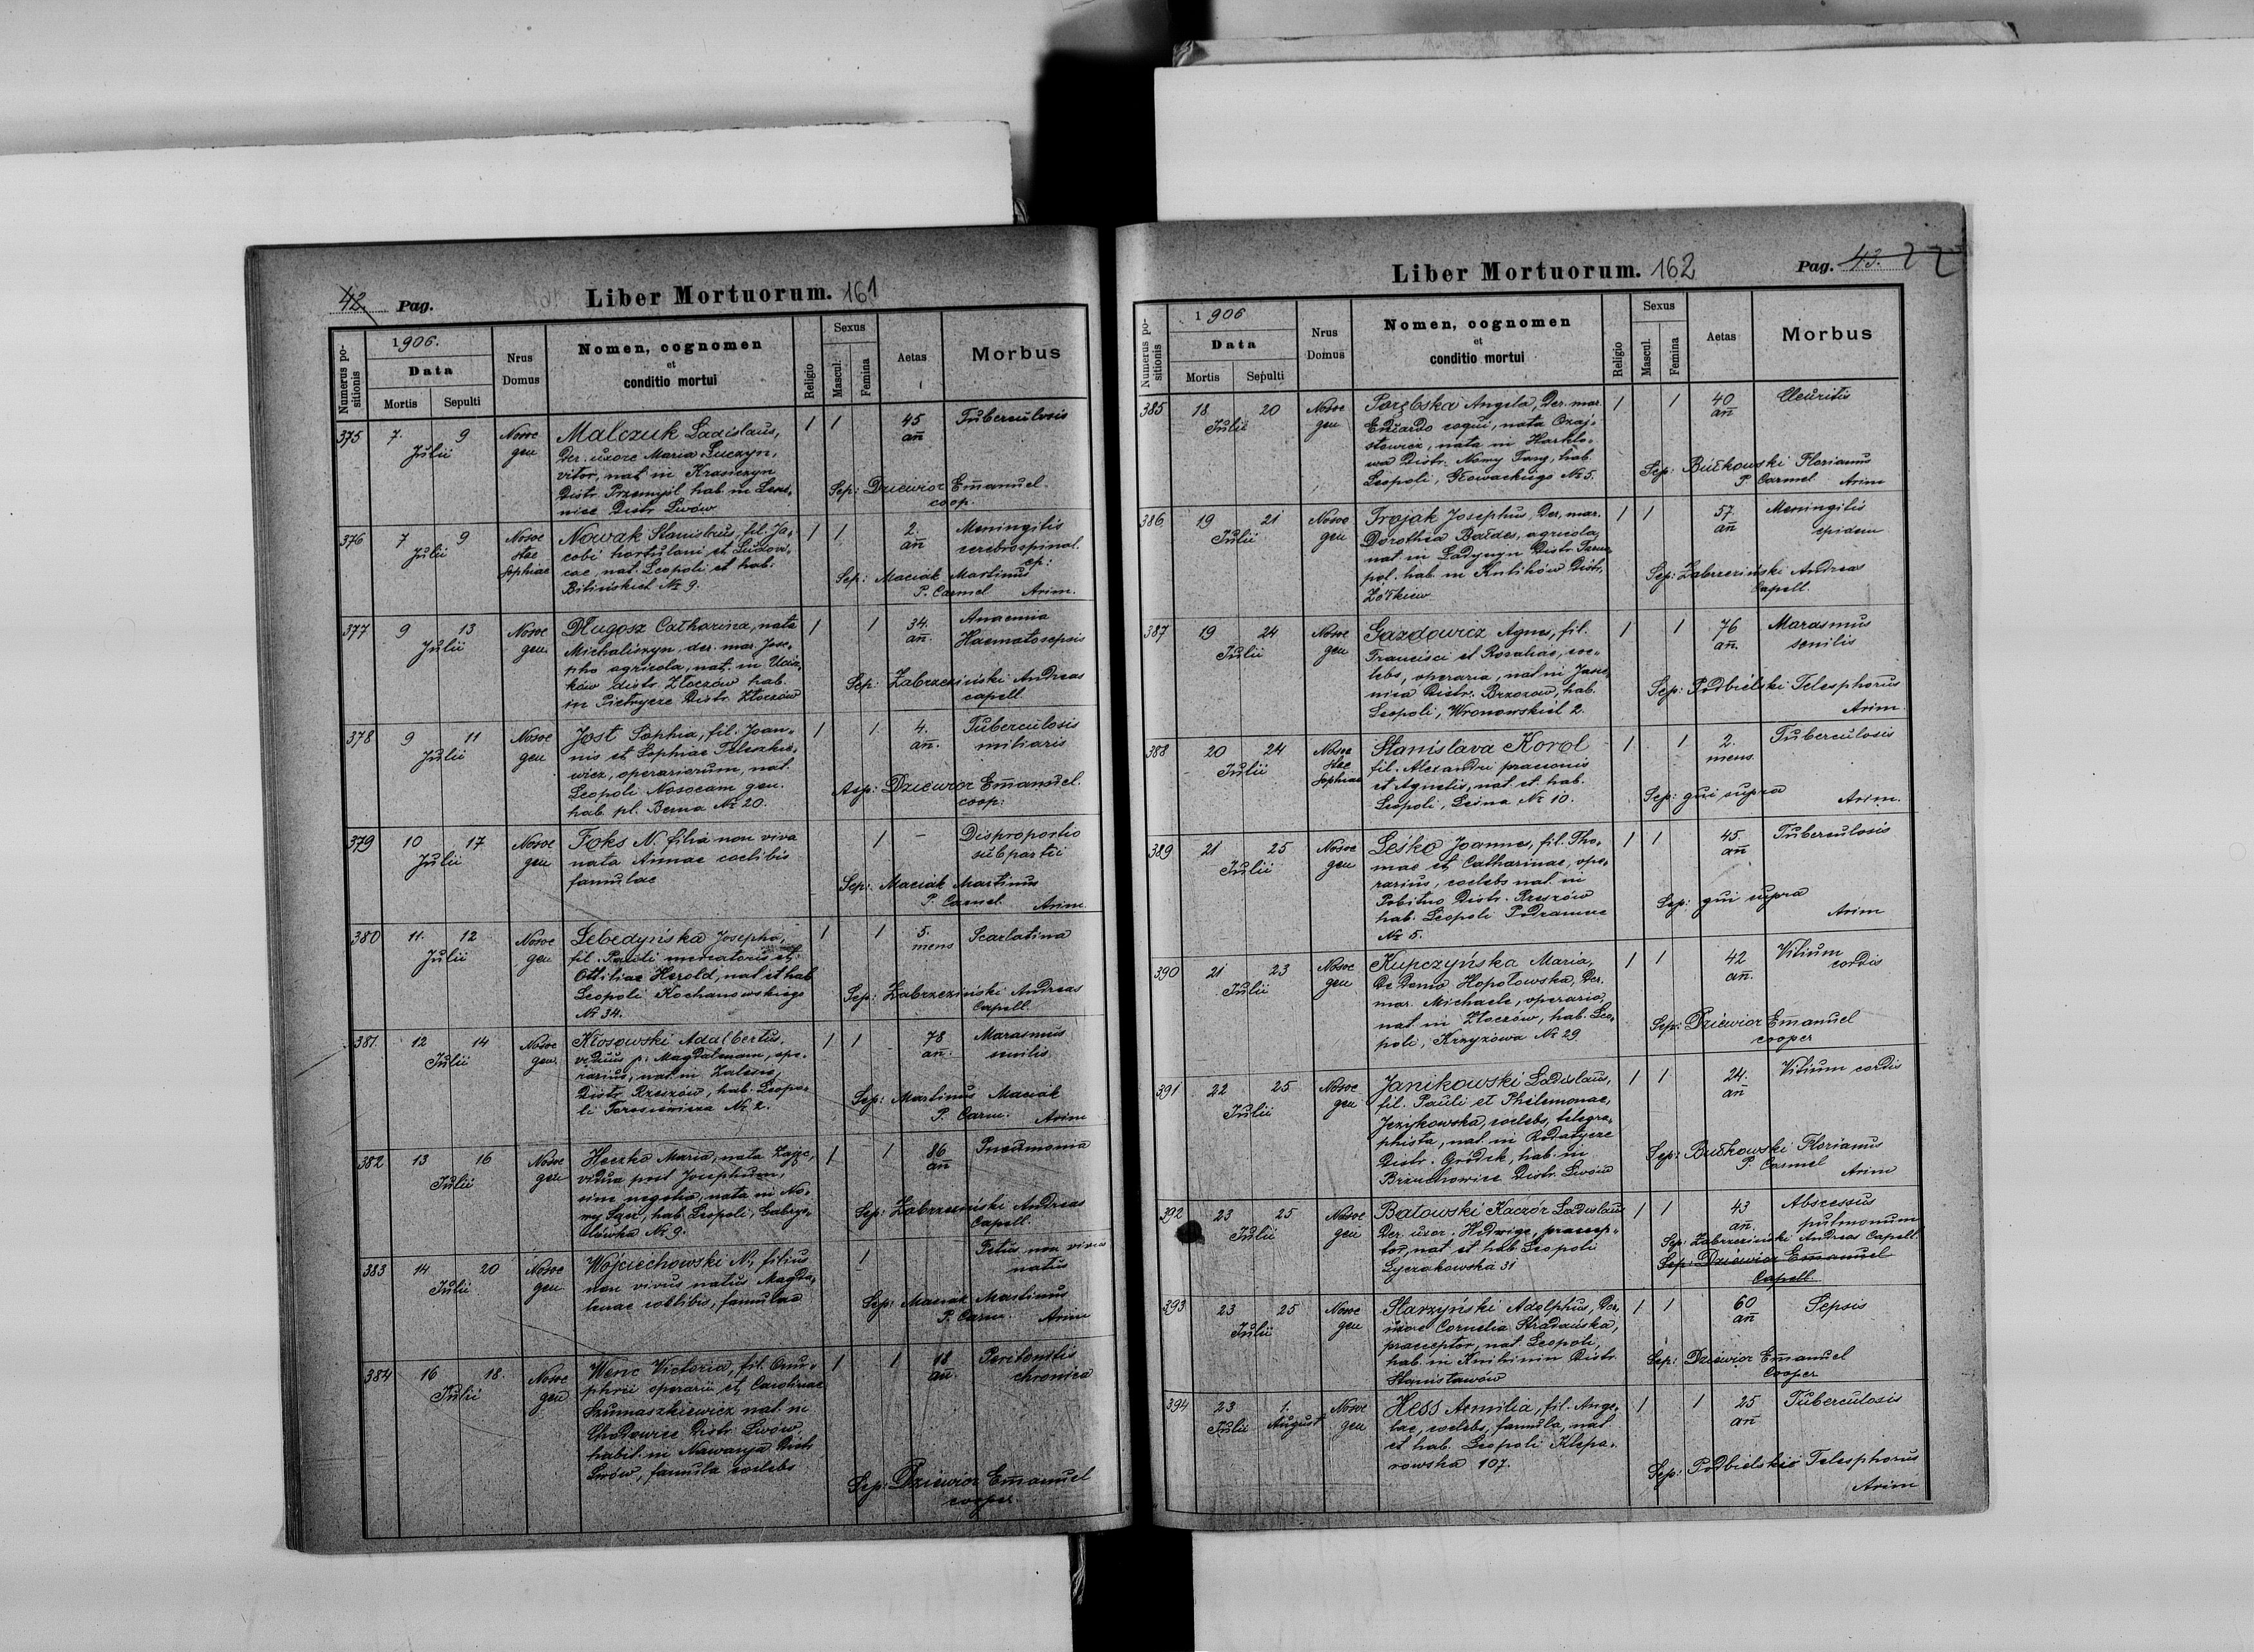 42 Pag.
Liber Mortuorum. 161
Numerus positionis
1906.
Data
Mortis
Sepulti
Nrus Domus
Nomen, cognomen
et
conditio mortui
Religio
Sexus
Mascul.
Femina
Aetas
Morbus
375 7. 9 Julii
Nosoc gen
Malczuk Ladislaus,
Der. uxore Maria Luczyn,
vitor, nat in Krasiczyn
Distr. Przemysl hab. in
Distr Lwów
1 1 45 an̄
Tuberculosis
Sep: Dziewior Em̄anuel
coop.
376 7 9 Julii
Nosoc Stae Sophiae
Nowak Stanislaus, fil. Ja-
cobi hortulani et Ludovi-
cae, nat. Leopoli et hab.
Bilińskich № 9.
1 1 2. an̄
Meningitis
cerebrospinal.
ep:
Sep: Maciak Martinus
P. Carmel Arim.
377 9 13 Julii
Nosoc gen.
Długosz Catharina, nata
Michaliszyn, der. mar. Jose-
pho agricola, nat. in
distr. Złoczów hab.
in Pietrycze Distr. Złoczów
1 1 34. an̄.
Anaemia
Haematosepsis
Sep: Zabrzeziński Andreas
capell
378 9 11 Julii
Nosoc gen
Jost Sophia, fil. Joan-
nis et Sophiae Teleszkie-
wicz, operariorum, nat.
Leopoli Nosocom gen.
hab. pl. Bema № 20.
1 1 4. an̄.
Tuberculosis
miliaris
Asp: Dziewior Em̄anuel.
coop:
379 10 17 Julii
Nosoc gen
Foks N. filia non viva
nata Annae coelibis
famulae
1 –
Disproportio
sub partu
Sep: Maciak Martinus
P. Carmel. Arim.
380 11. 12 Julii
Nosoc gen
Lebedyńska Josepha,
fil. Pauli mercatoris et
Ottiliae Herold, nat et hab
Leopoli Kochanowskiego
№ 34.
1 1 5. mens
Scarlatina
Sep: Zabrzeziński Andreas
Capell.
381. 12 14 Julii
Nosoc gen.
Kłosowski Adalbertus,
viduus p. Magdalenam, ope-
rarius, nat. in Zalesie,
Distr. Rzeszów, hab. Leopo-
li Torosiewicza № 2.
1 1 78 an̄.
Marasmus
senilis
Sep: Martinus Maciak
P. Carm. Arim
382 13 16 Julii
Nosoc gen
Heczko Maria, nata Zając,
vidua post Josephum,
sine negotio, nata in No-
wy Sącz, hab. Leopoli, Gabrye-
lówka № 9.
1 1 86 an̄
Pneumonia
Sep: Zabrzeziński Andreas
Capell.
383 14 20 Julii
Nosoc gen
Wojciechowski N., filius
non vivus natus Magda-
lenae coelibis, famulae
1
Fetus non vivus
natus
Sep: Maciak Martinus
P. Carm. Arim
384 16 18. Julii
Nosoc gen
Wenc Victoria, fil. Onu-
phrii operarii et Carolinae
Szumaszkiewicz nat. in
Chodowice Distr Lwów,
habit. in Nawarya Distr
Lwów, famula coelebs
1 1 18 an̄.
Peritonitis
chronica
Sep: Dziewior Em̄anuel
cooper.
Liber Mortuorum. 162
Pag. 43. 22
Numerus positionis
1906
Data
Mortis
Sepulti
Nrus Domus
Nomen, cognomen
et
conditio mortui
Religio
Sexus
Mascul.
Femina
Aetas
Morbus
385 18 20 Julii
Nosoc gen
Porębska Angela, Der. mar.
Eduardo coqui, nata
nata in Harklo-
wa Distr. Nowy Targ, hab.
Leopoli, Głowackiego № 5.
1 1 40 an̄
Pleuritis
Sep: Bułkowski Florianus
P. Carmel Arim
386 19 21 Julii
Nosoc gen
Trojak Josephus, Der. mar.
Dorothea Bałdes, agricola,
nat. in Ladyczyn Distr. Tarno-
pol. hab. in Kulików Distr.
Żółkiew
1 1 57. an̄
Meningitis
epidem
Sep: Zabrzeziński Andreas
Capell.
387 19 24 Julii
Nosoc gen
Gazdowicz Agnes, fil.
Francisci et Rosaliae, coe-
lebs, operaria, nat in Jasie-
nica Distr. Brzozow, hab.
Leopoli, Wronowskich 2.
1 1 76 an̄.
Marasmus
senilis
Sep: Podbielski Telesphorus
Arim.
388 20 24 Julii
Nosoc Stae Sophiae
Stanislava Korol
fil. Alexandri praeconis
et Agnetis, nat. et. hab.
Leopoli, Leśna № 10.
1 1 2. mens
Tuberculosis
Sep: qui supra
Arim.
389 21 25 Julii
Nosoc gen
Leśko Joannes, fil. Tho-
mae et Catharinae, ope-
rarius, coelebs nat. in
Pobitno Distr. Rzeszów
hab. Leopoli Podzamcze
№ 5.
1 1 45. an̄
Tuberculosis
Sep: qui supra
Arim
390 21 23 Julii
Nosoc gen
Kupczyńska Maria,
De Domo Hopołowska, Der.
mar. Michaele, operario,
nat. in Złoczów, hab. Leo-
poli, Krzyżowa № 29
1 1 42 an̄.
Vitium
cordis
Sep: Dziewior Em̄anuel
cooper
391 22 25 Julii
Nosoc gen
Janikowski Ladislaus,
fil. Pauli et Philemonae,
Jezykowska, coelebs, telegra-
phista, nat. in Rodatycze
Distr. Gródek, hab. in
Brzuchowice Distr. Lwów
1 1 24. an̄
Vitium cordis
Sep: Bułkowski Florianus
P. Carmel Arim
392 23 25 Julii
Nosoc gen
Batowski Kaczór Ladislaus
Der. uxor. Hedwige, praecep-
tor, nat. et hab Leopoli
Łyczakowska 31
1 1 43 an̄.
Abscessus
pulmonum
Sep: Zabrzeziński Andreas Capell
Sep: Dziewior Em̄anuel
Capell.
393 23 25 Julii
Nosoc gen
Starzyński Adolphus, Der.
uxore Cornelia Stradańska,
praeceptor, nat. Leopoli,
hab. in Knihinin Distr.
Stanisławów
1 1 60 an̄
Sepsis
Sep: Dziewior Em̄anuel
Cooper
394 23 Julii 1. August
Nosoc gen
Hess Aemilia, fil. Ange-
lae, coelebs, famula, nat.
et hab. Leopoli Klepa-
rowska 107.
1 1 25 an̄
Tuberculosis
Sep: Podbielski Telesphorus
Arim